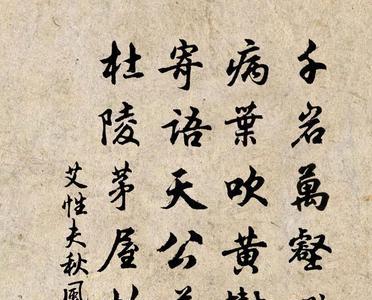 千岩萬壑
病葉吹黄
寄語天公
杜陵茅屋
艾性夫秋風